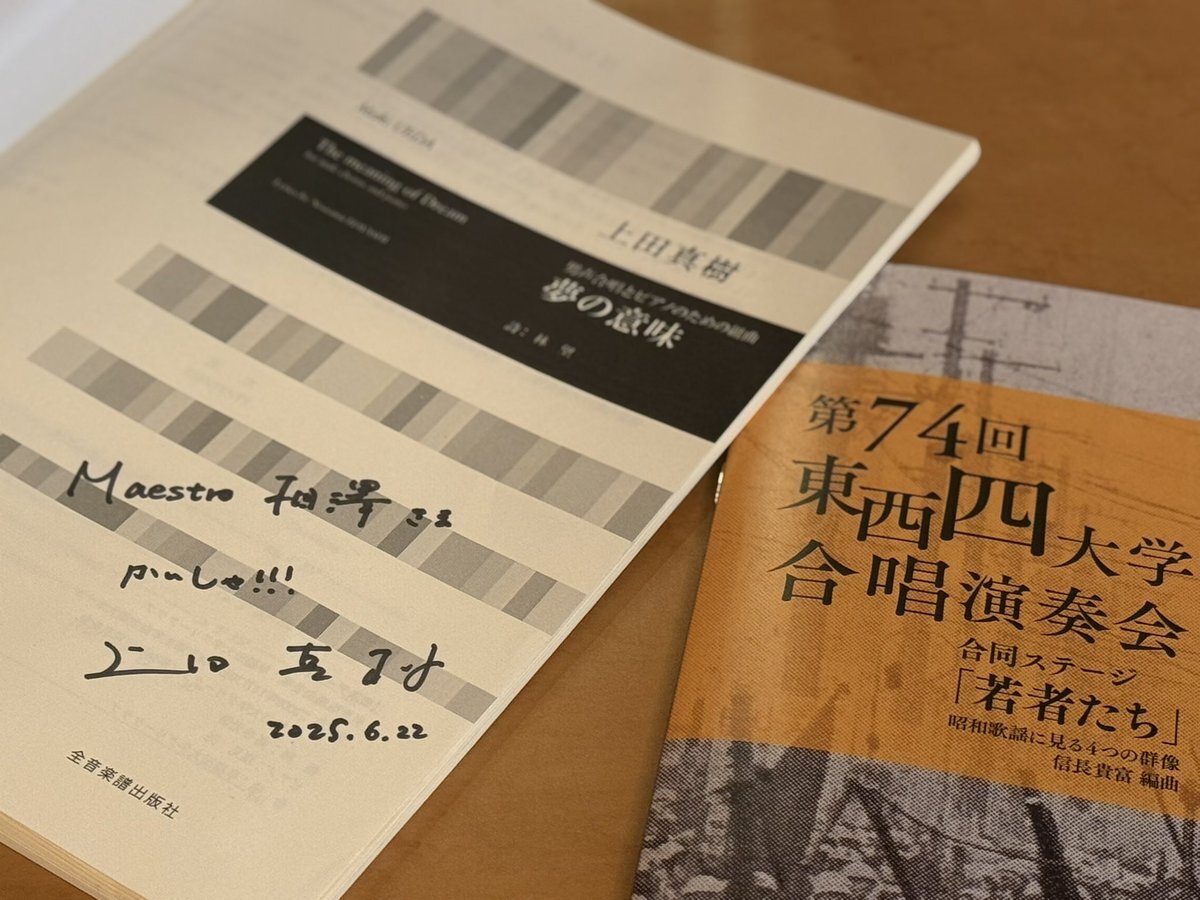 Maki UEDA
The meaning of Dream
for male chorus and piano
上田真樹
男声合唱とピアノのための組曲
夢の意味
詩：林 望
Maestro 相澤さま
かんしゃ!!!
上田真樹
2025.6.22
全音楽譜出版社
第74回
東西四大学
合唱演奏会
合同ステージ
「若者たち」
昭和歌謡に見る4つの群像
信長貴富 編曲